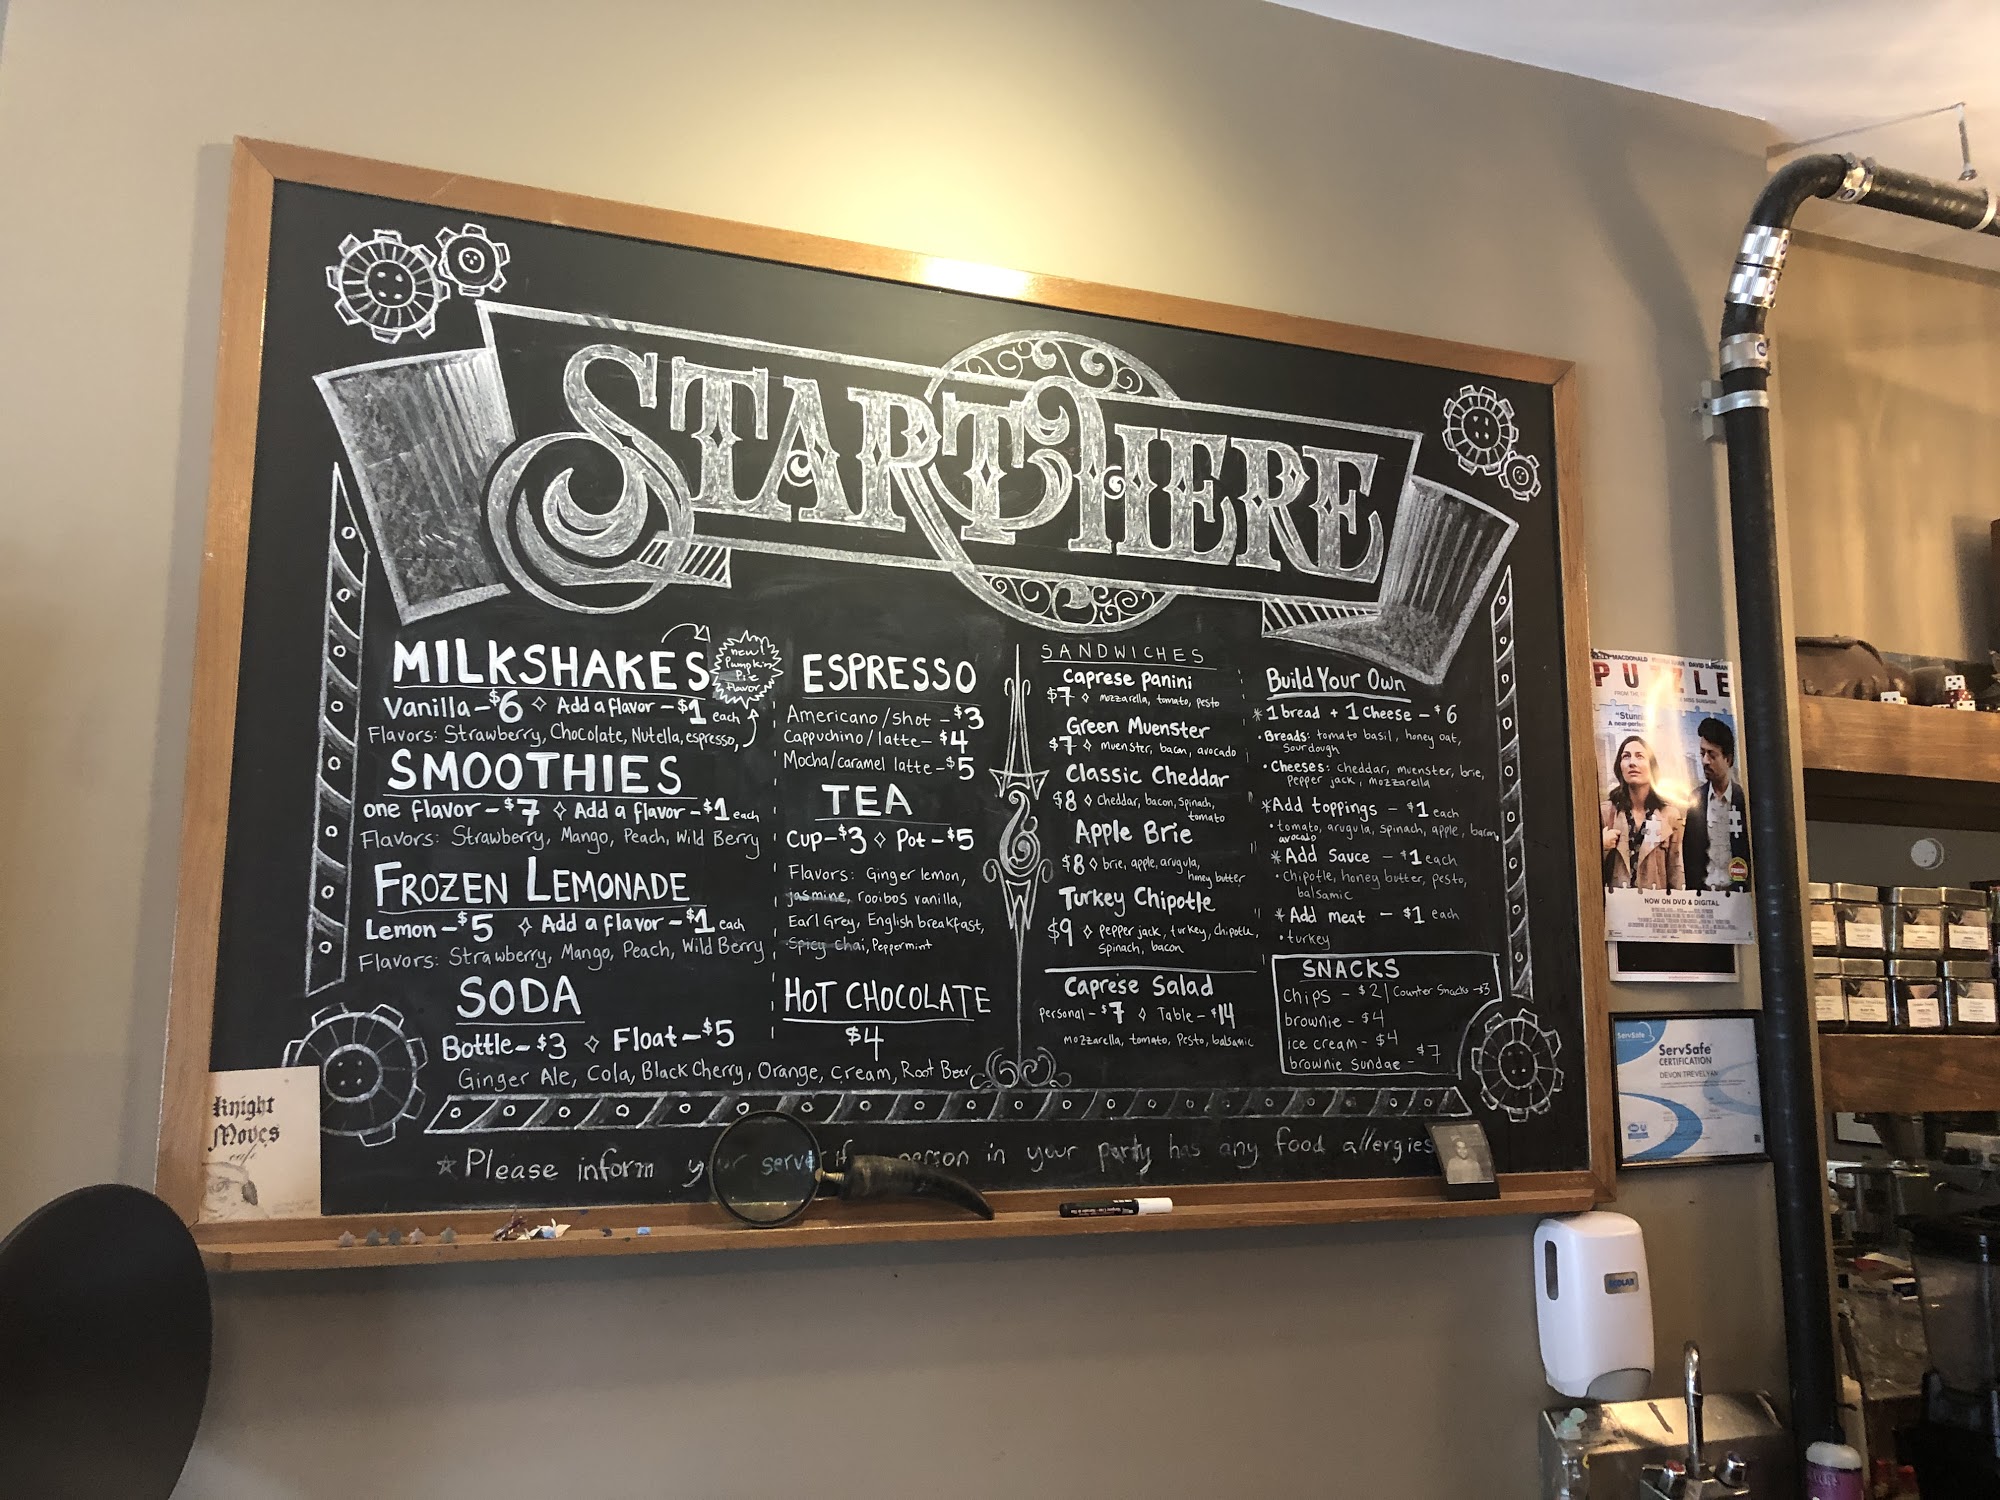 START HERE
MILKSHAKES
new!
Pumpkin
Pie
flavor
Vanilla - $6 ◇ Add a flavor - $1 each
Flavors: Strawberry, Chocolate, Nutella, espresso,
SMOOTHIES
one flavor - $7 ◇ Add a flavor - $1 each
Flavors: Strawberry, Mango, Peach, Wild Berry
FROZEN LEMONADE
Lemon - $5 ◇ Add a flavor - $1 each
Flavors: Strawberry, Mango, Peach, Wild Berry
SODA
Bottle - $3 ◇ Float - $5
Ginger Ale, Cola, Black Cherry, Orange, Cream, Root Beer
ESPRESSO
Americano/shot - $3
Cappuchino/latte - $4
Mocha/caramel latte - $5
TEA
Cup - $3 ◇ Pot - $5
Flavors: Ginger lemon,
jasmine, rooibos vanilla,
Earl Grey, English breakfast,
Spicy Chai, Peppermint
HOT CHOCOLATE
$4
SANDWICHES
Caprese panini
$7 ◇ mozzarella, tomato, pesto
Green Muenster
$7 ◇ muenster, bacon, avocado
Classic Cheddar
$8 ◇ Cheddar, bacon, spinach,
tomato
Apple Brie
$8 ◇ brie, apple, arugula,
honey butter
Turkey Chipotle
$9 ◇ pepper jack, turkey, chipotle,
spinach, bacon
Caprese Salad
personal - $7 ◇ Table - $14
mozzarella, tomato, pesto, balsamic
Build Your Own
* 1 bread + 1 cheese - $6
• Breads: tomato basil, honey oat,
Sourdough
• Cheeses: cheddar, muenster, brie,
pepper jack, mozzarella
* Add toppings - $1 each
• tomato, arugula, spinach, apple, bacon,
avocado
* Add sauce - $1 each
• Chipotle, honey butter, pesto,
balsamic
* Add meat - $1 each
• turkey
SNACKS
chips - $2 | Counter Snacks - $3
brownie - $4
ice cream - $4
brownie sundae - $7
☆ Please inform your server if a person in your party has any food allergies
Knight
Moves
cafe
PUZZLE
NOW ON DVD & DIGITAL
ServSafe
ServSafe
CERTIFICATION
DEVON TREVELYAN
ECOLAB